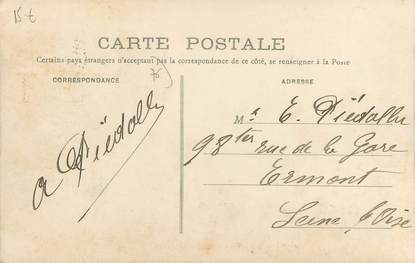 15 €
CARTE POSTALE
Certains pays étrangers n'acceptant pas la correspondance de ce côté, se renseigner à la POSTE
CORRESPONDANCE
ADRESSE
Mr E. Piédallu
98ter rue de la Gare
Ermont
Seine & Oise
a Piédallu